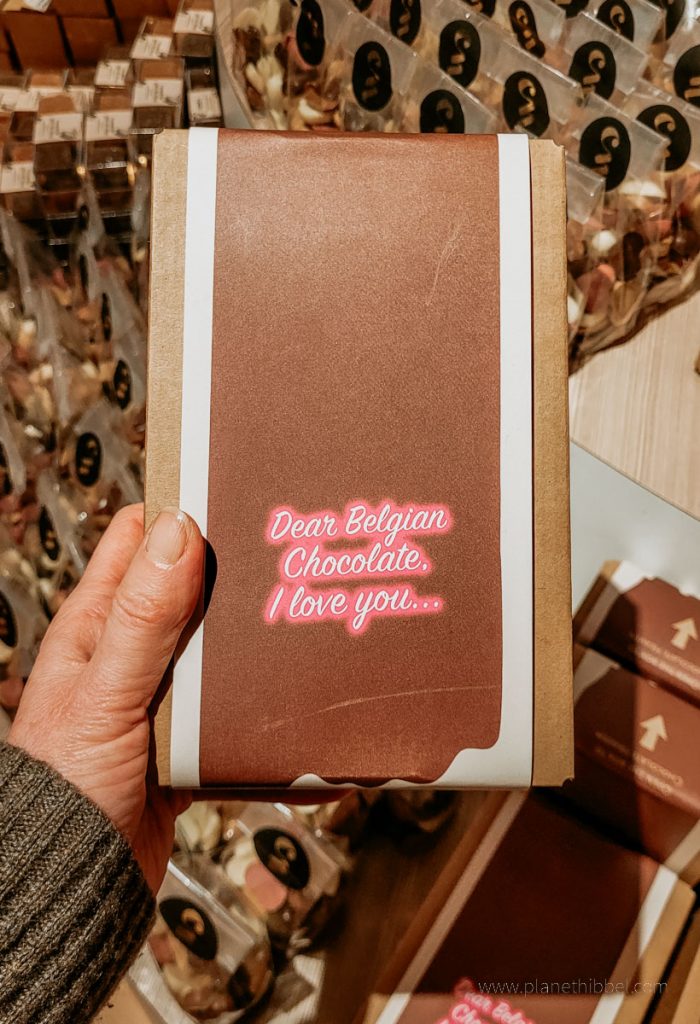 Dear Belgian
Chocolate,
I love you...
www.planethibbel.com
Dear Belgian